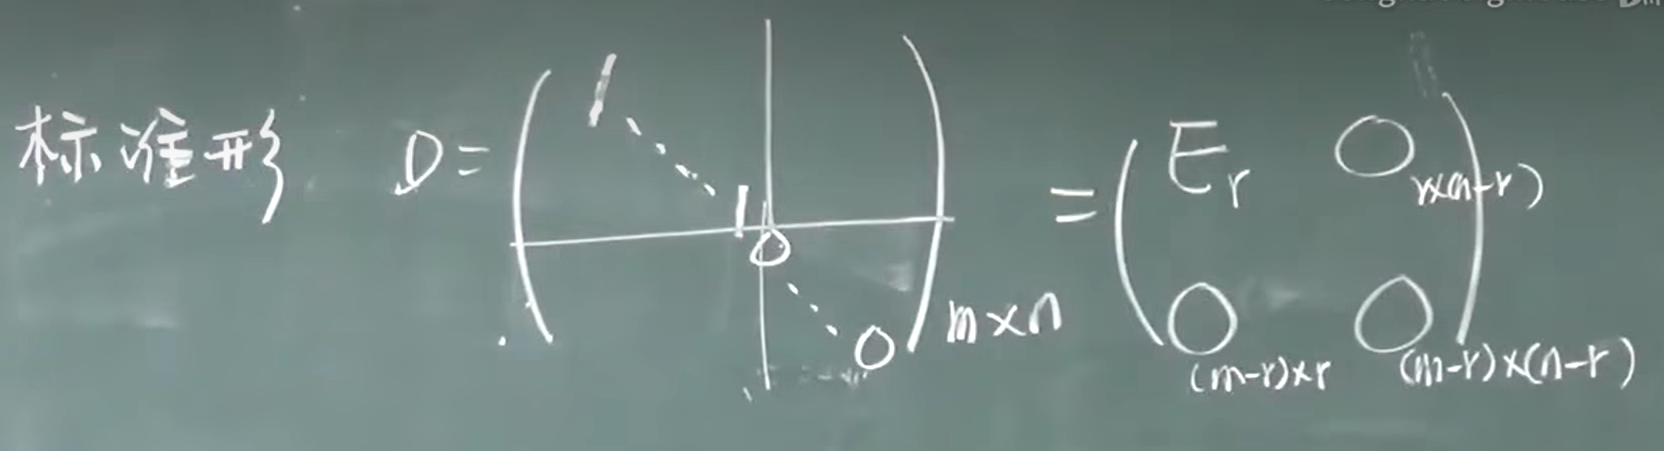 标准形 D = ( 1 ⋱ 1 0 ⋱ 0 )_{m×n} = ( E_r O_{r×(n-r)} 
O_{(m-r)×r} O_{(m-r)×(n-r)} )